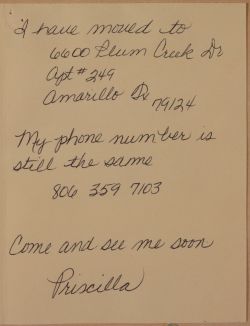 I have moved to
6600 Plum Creek Dr
Apt # 249
Amarillo Tx
79124
My phone number is
still the same
806 359 7103
Come and see me soon
Priscilla